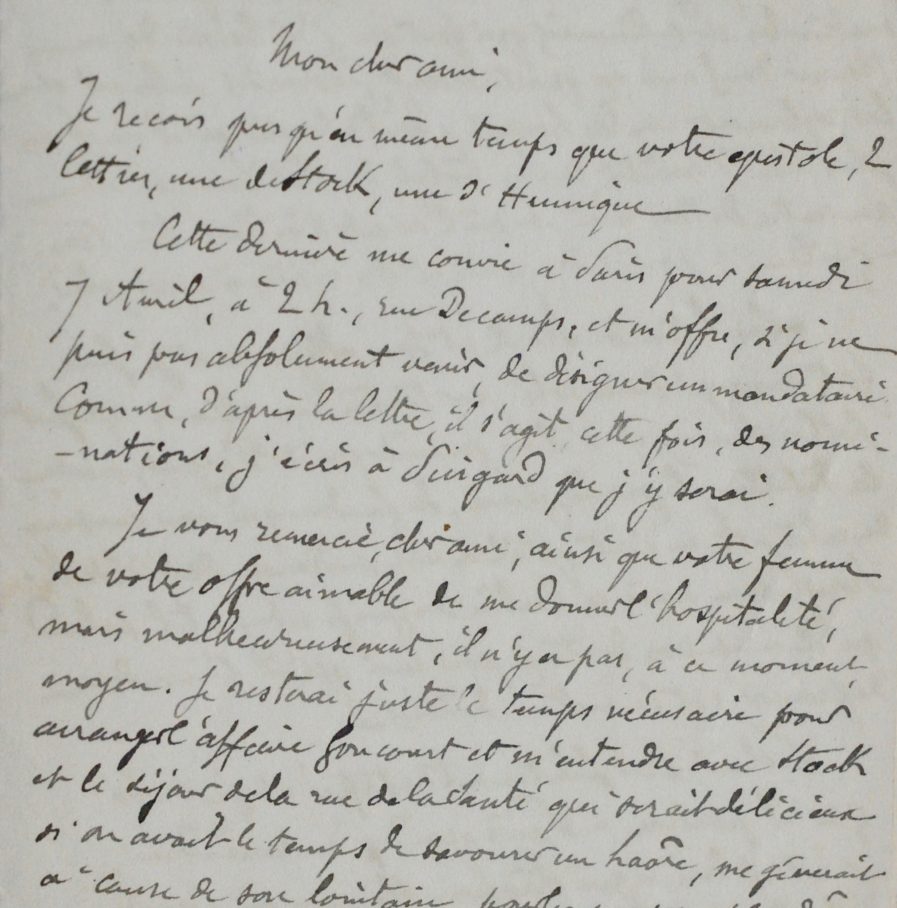 Mon cher ami,
Je reçois presqu'en même temps que votre epistole, 2
lettres, une de Stock, une d'Hennique
Cette dernière me convie à Paris pour samedi
7 Avril, à 2 h., rue Decamps, et m'offre, si je ne
puis pas absolument venir, de désigner un mandataire.
Comme, d'après la lettre, il s'agit, cette fois, des nomi-
-nations, j'écris à que j'y serai.
Je vous remercie, cher ami, ainsi que votre femme
de votre offre aimable de me donner l'hospitalité,
mais malheureusement, il n'y a pas, à ce moment,
moyen. Je resterai juste le temps nécessaire pour
arranger l'affaire Goncourt et m'entendre avec Stock
et le séjour de la rue de la Santé qui serait délicieux
si on avait le temps de savourer un havre, me gênerait
à cause de son lointain